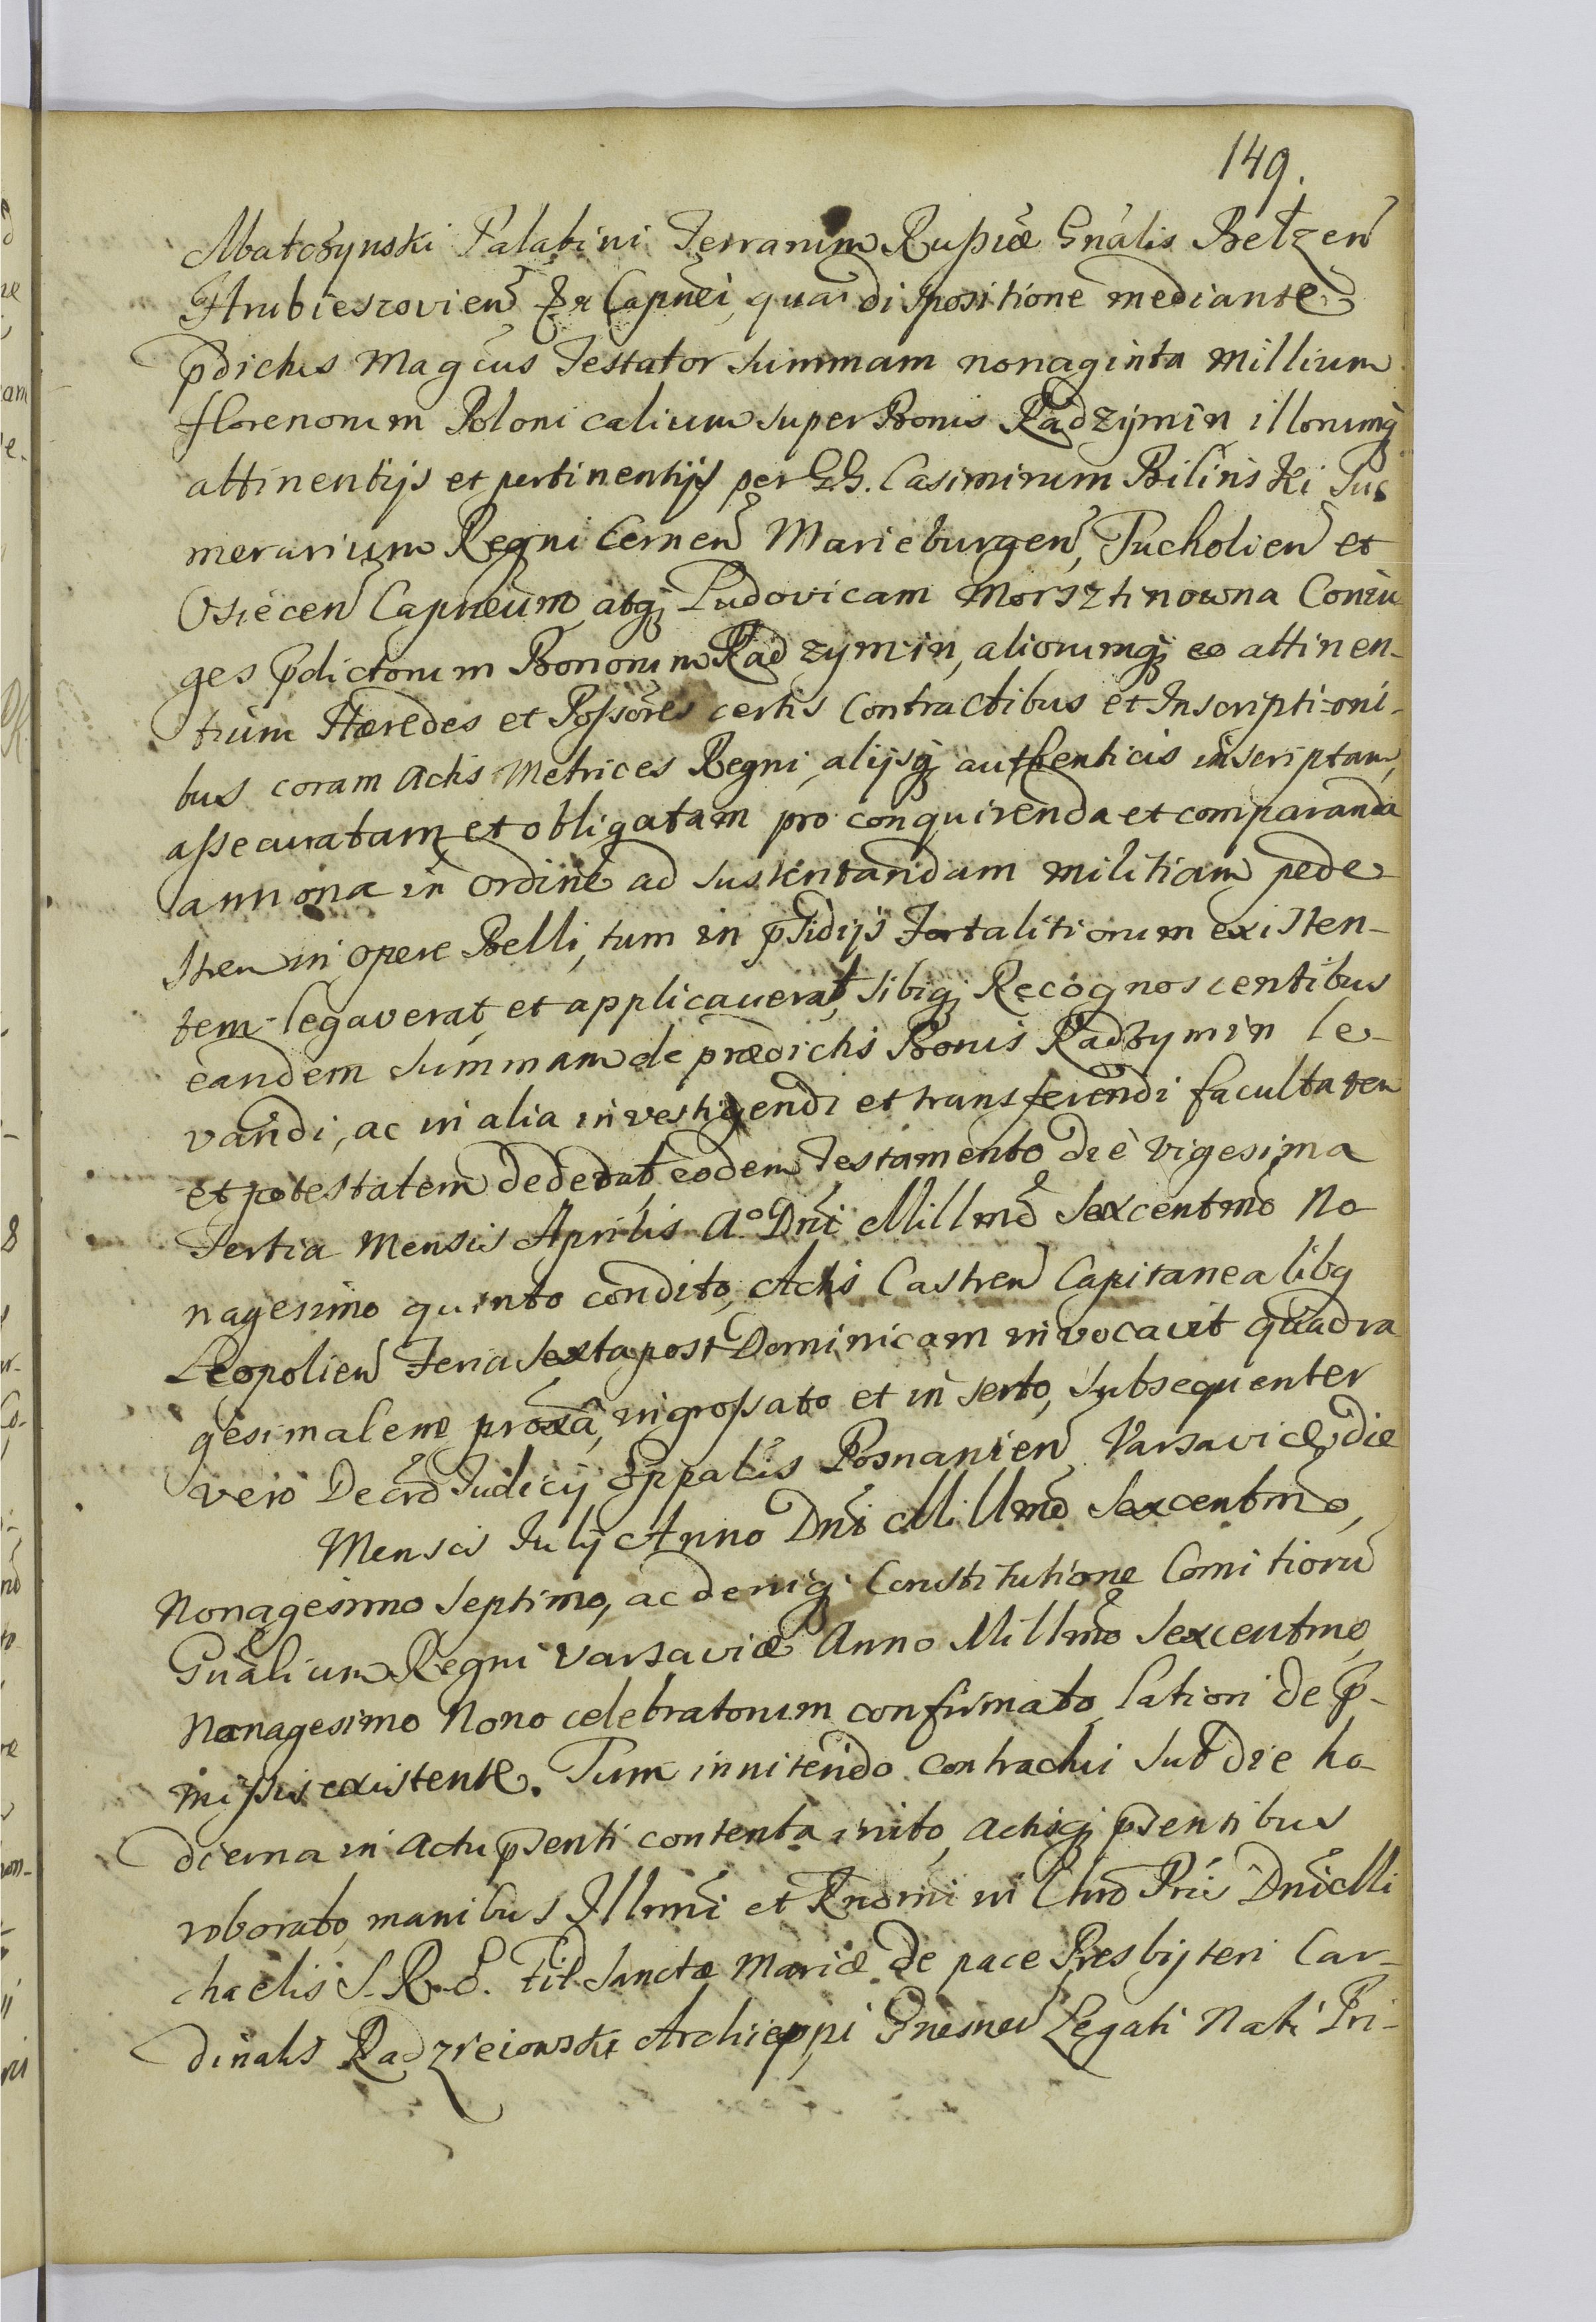 149.
Matczynski Palatini Terrarum Russiæ Gnãlis Betzeñ
Hrubiesrovieñ Capnei, qua dispositione mediante
p̃dictus Magcus Testator summam nonaginta millium
florenorum Polonicalium super Bonis Radzymin illorumq̃
attinentijs et pertinentijs per G.G. Casimirum Bilinski Suc
merarium Regni Cerneñ Marieburgeñ, Tucholieñ et
Osiéceñ Capneum, atq̃ Ludovicam Morsztinowna Coniu
ges p̃dictorum Bonorum Radzymin, aliorumq̃ eo attinen-
tium Hæredes et Possõres certis Contractibus et Inscriptioni-
bus coram Actis Metrices Regni, alijsq̃ authenticis inscriptam,
assecuratam et obligatam pro conquirenda et comparanda
annona in ordine ad sustentandam militiam pede
strem in opere Belli, tum in p̃sidijs Fortalitiorum existen-
tem legaverat et applicaverat, sibiq̃ Recognoscentibus
eandem summam de prædictis Bonis Radzymin le-
vandi, ac in alia investigendi et transferendi facultatem
et potestatem dederat eodem Testamento die vigesima
Tertia Mensis Aprilis Aº Dñi Millmo Sexcentmo No
nagesimo quinto condito, Actis Castreñ Capitanealibq
Leopolieñ Feria Sexta post Dominicam invocavit quadra
gesimalem proxã, ingrossato et inserto, subsequenter
vero Decrõ Judicij Eppalis Posnanieñ Varsaviæ die
Mensis Julij Anno Dñi Millmo Sexcentmo,
Nonagesimo septimo, ac deniq̃ Constitutione Comitiorũ
Gnãlium Regni Varsaviæ Anno Millmo Sexcentmo
Nonagesimo Nono celebratorum confirmato, lation de p̃-
missis existente. Tum innitendo contractui sub die ho-
dierna in Actu p̃senti contenta inito, actisq̃ p̃sentibus
roborato, manibus Illmi et Rndmi in Chro Pris Dñi Mi
chaelis S.R.E. Tit Sanctæ Mariæ de pace Presbyteri Car-
dinalis Radzieiowski Archieppi Gnesneñ Legati Nati Pri-